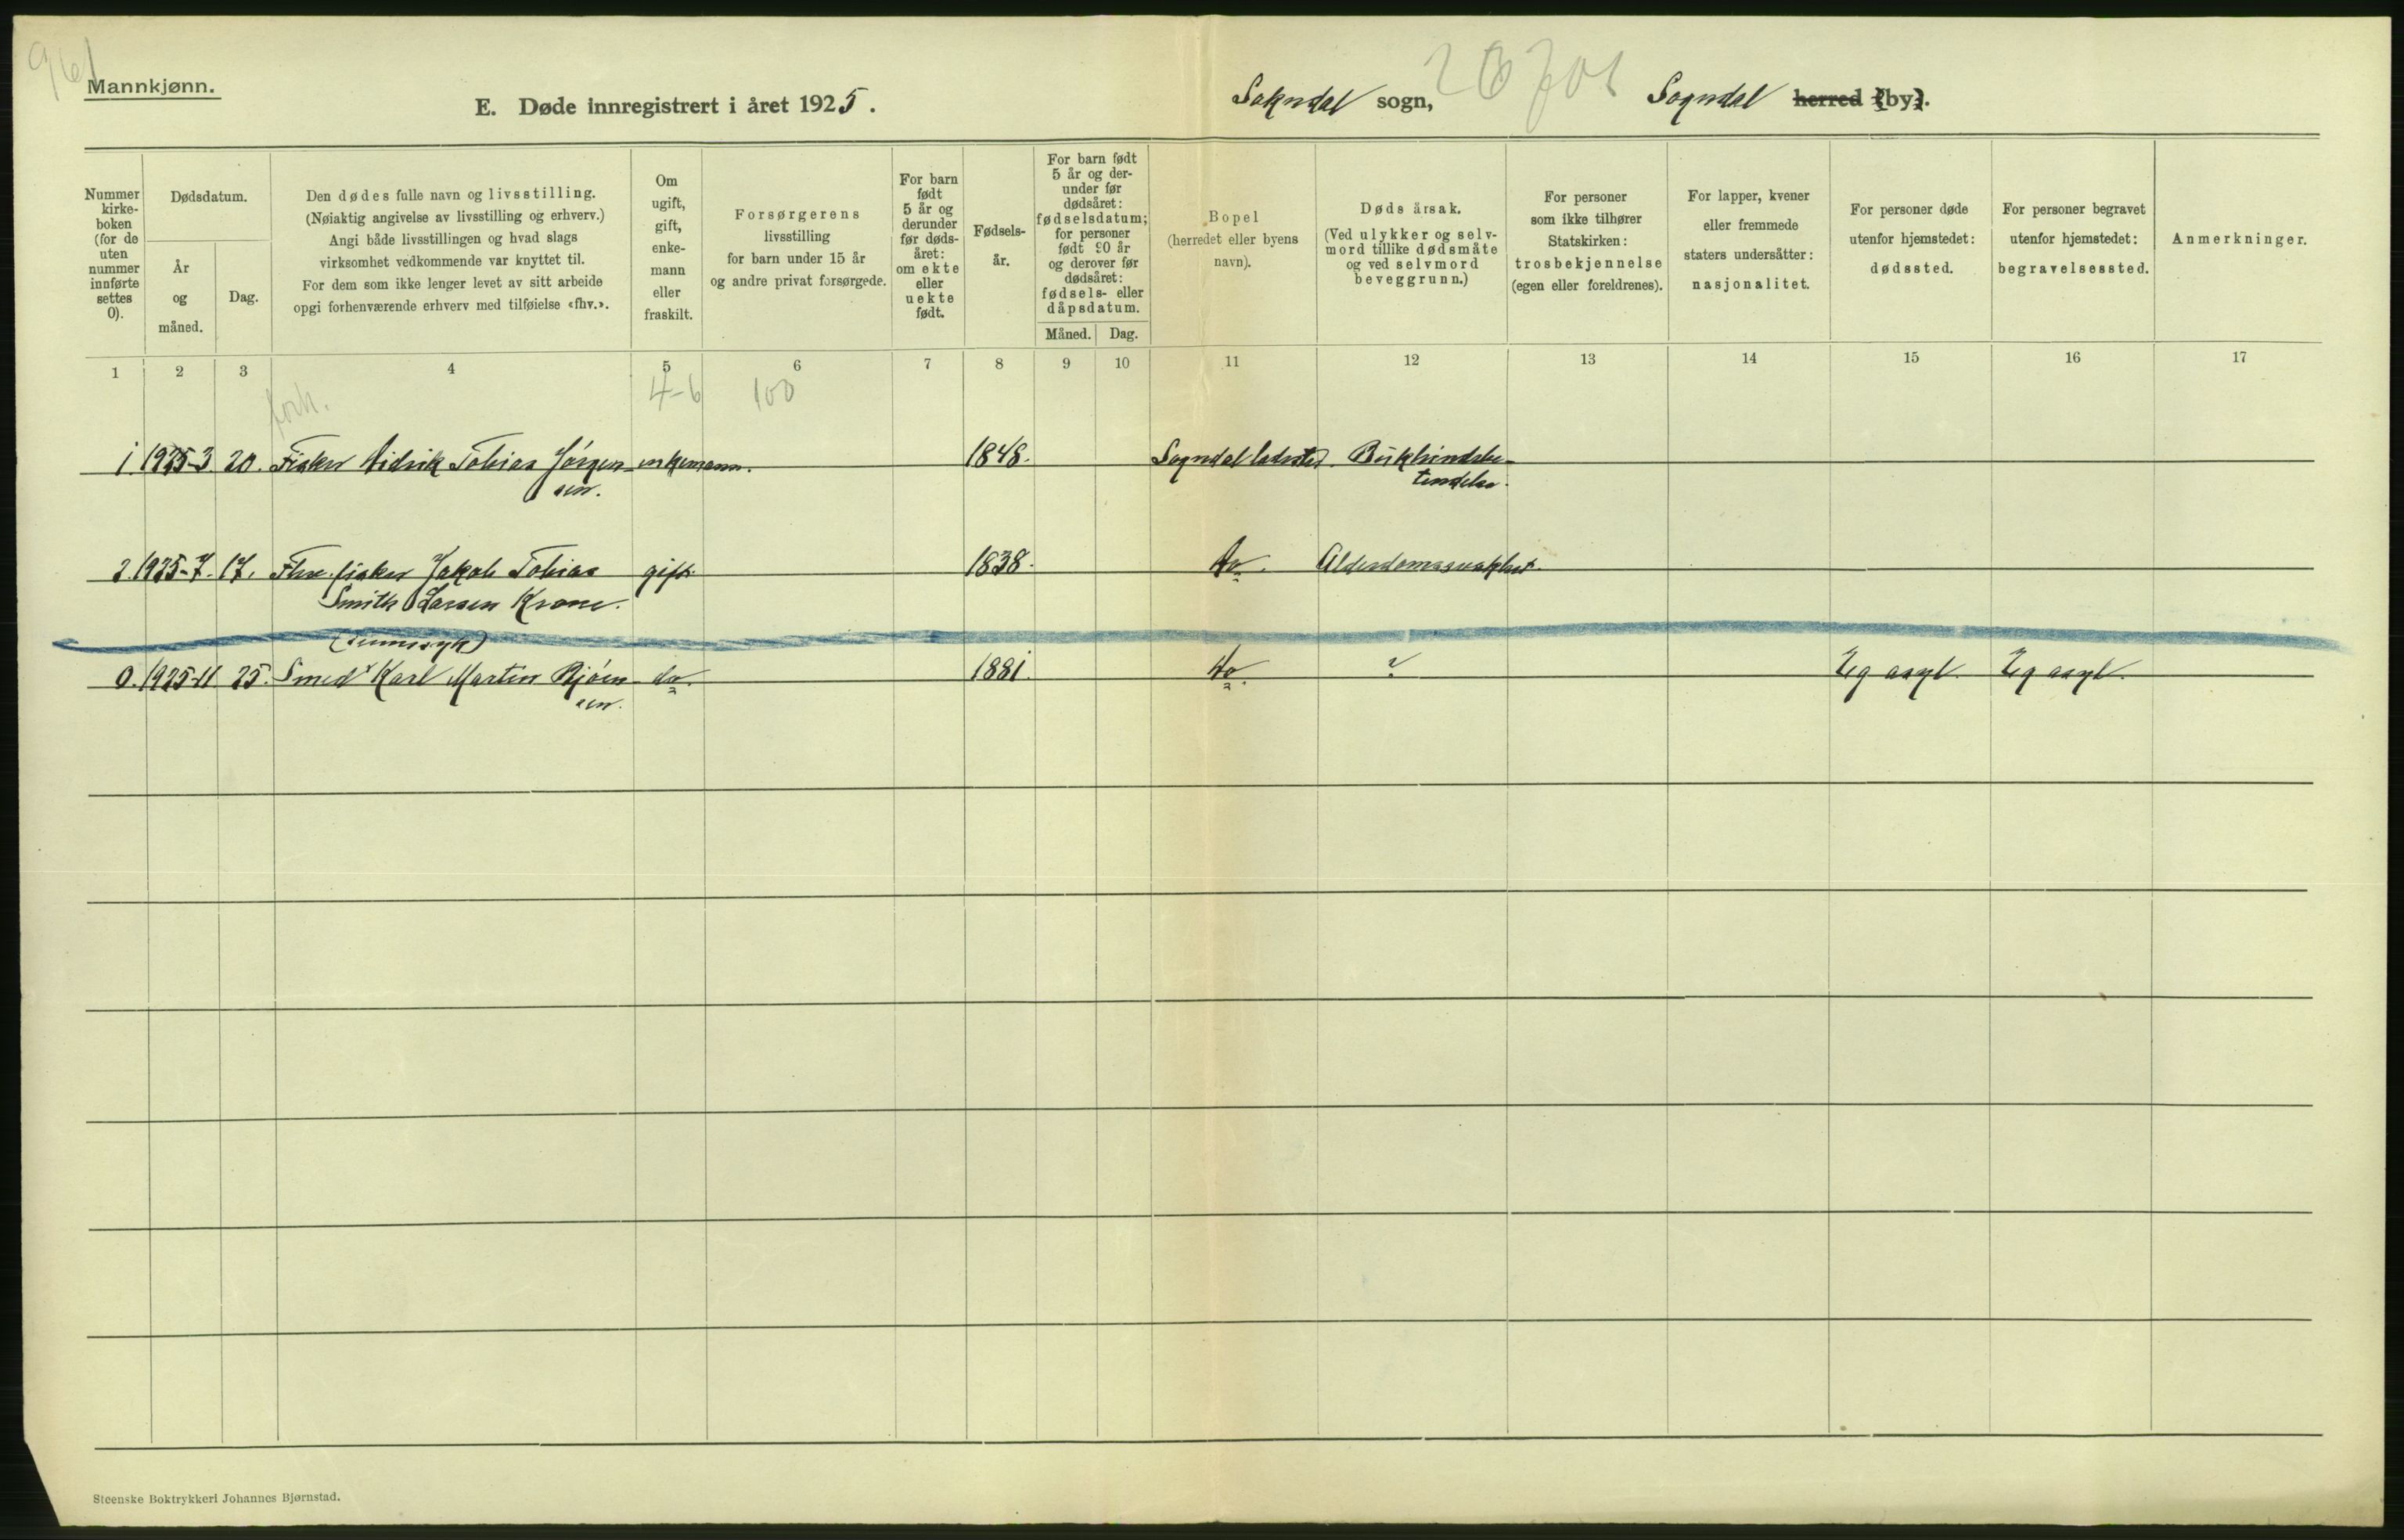 Mannkjønn.
E. Døde innregistrert i året 1925.
Sokndal sogn, Sogndal herred (by).
Nummer
kirke-
boken
(for de
uten
nummer
innførte
settes
0).
Dødsdatum.
År
og
måned.
Dag.
Den dødes fulle navn og livsstilling.
(Nøiaktig angivelse av livsstilling og erhverv.)
Angi både livsstillingen og hvad slags
virksomhet vedkommende var knyttet til.
For dem som ikke lenger levet av sitt arbeide
opgi forhenværende erhverv med tilføielse «fhv.».
Om
ugift,
gift,
enke-
mann
eller
fraskilt.
Forsørgerens
livsstilling
for barn under 15 år
og andre privat forsørgede.
For barn
født
5 år og
derunder
før døds-
året:
om ekte
eller
uekte
født.
Fødsels-
år.
For barn født
5 år og der-
under før
dødsåret:
fødselsdatum;
for personer
født 90 år
og derover før
dødsåret:
fødsels- eller
dåpsdatum.
Måned. Dag.
Bopel
(herredet eller byens
navn).
Dødsårsak.
(Ved ulykker og selv-
mord tillike dødsmåte
og ved selvmord
beveggrunn.)
For personer
som ikke tilhører
Statskirken:
trosbekjennelse
(egen eller foreldrenes).
For lapper, kvener
eller fremmede
staters undersåtter:
nasjonalitet.
For personer døde
utenfor hjemstedet:
dødssted.
For personer begravet
utenfor hjemstedet:
begravelsessted.
Anmerkninger.
1 2 3 4 5 6 7 8 9 10 11 12 13 14 15 16 17
4-6 100
forh.
1. 1925-3. 20. Fisker Didrik Tobias Jørgen- enkemann. 1848. Sogndal ladested Bukhindebe-
sen. tendelse.
2. 1925-7. 17. Fhv. fisker Jakob Tobias gift 1838. do. Alderdomssvakhet.
Smith Larsen Krone.
(sinnssyk)
0. 1925-11 25. Smed Karl Martin Bjørn- do. 1881. do. ? Eg asyl. Eg asyl.
sen.
Steenske Boktrykkeri Johannes Bjørnstad.